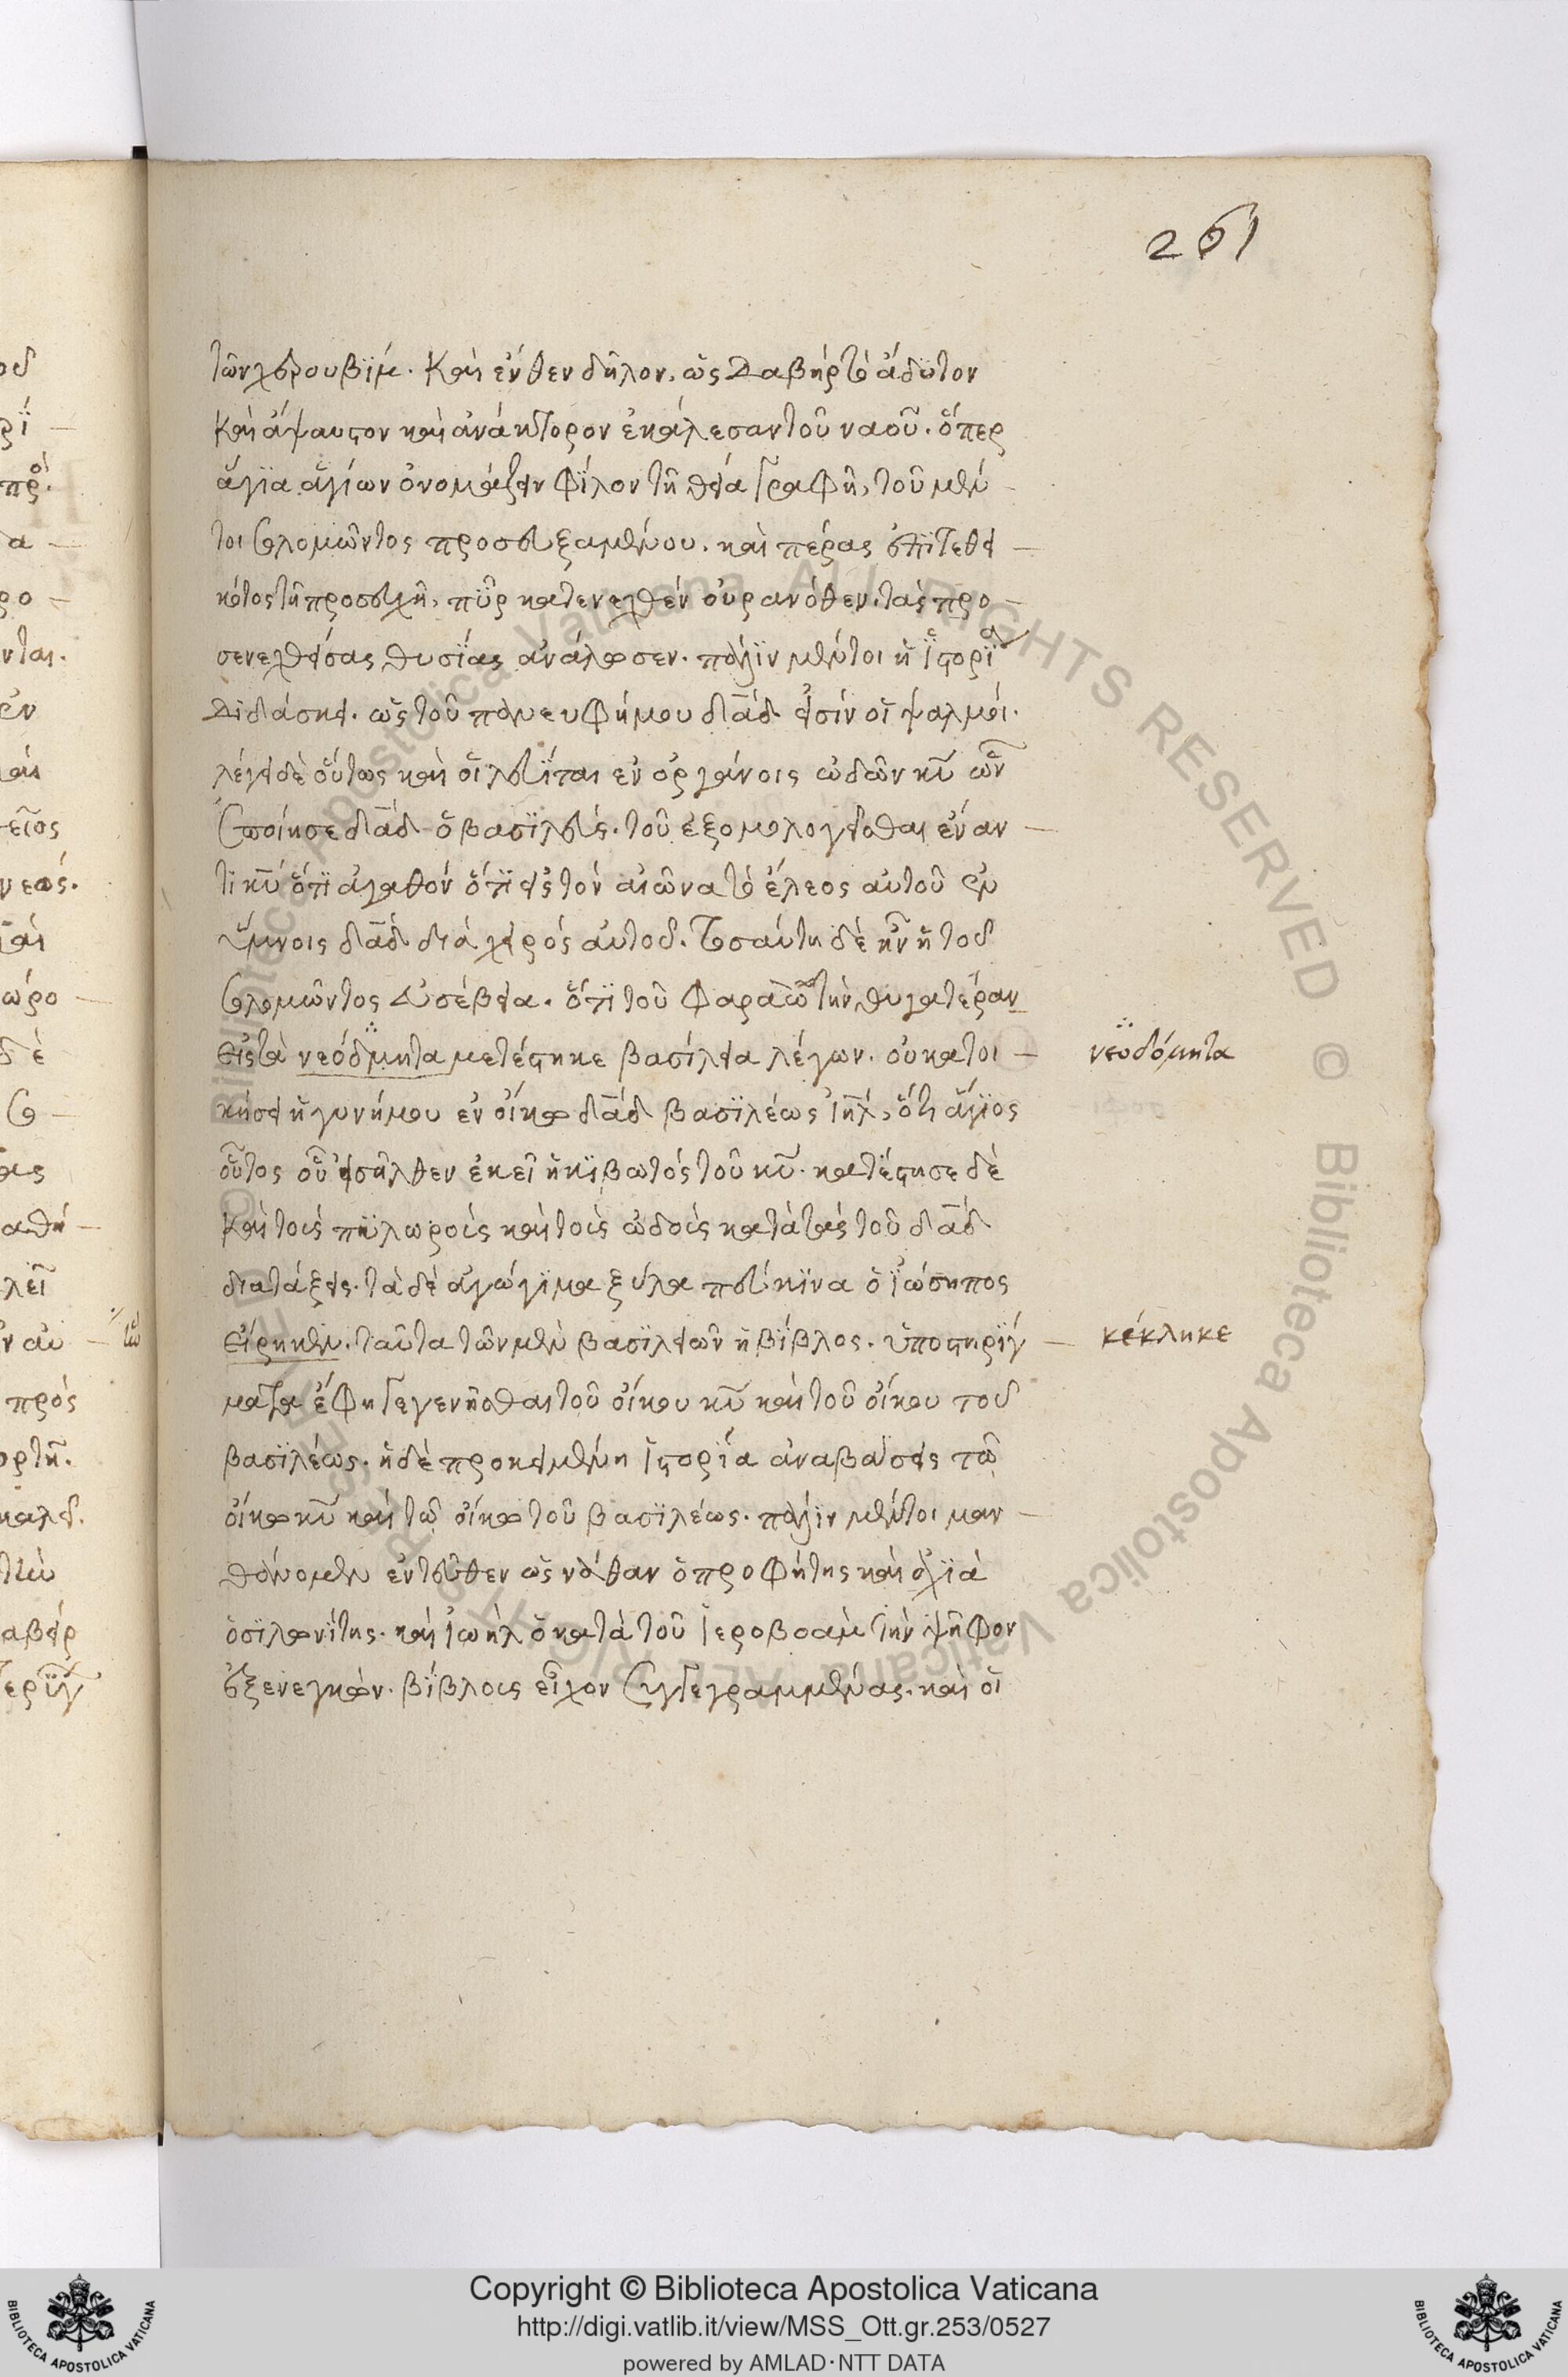 261
τῶν χερουβΐμ. Καὶ ἐνθεν δῆλον, ὡς Δαβὴρ τὸ ἄδυτον
καὶ ἄψαυστον καὶ ἀνάκτορον ἐκάλεσαν τοῦ ναοῦ. ὅπερ
ἅγϊα ἁγίων ὀνομάζειν φΐλον τῆ θεία γραφῆ, τοῦ μέν
τοι σολομῶντος προσευξαμένου. καὶ πέρας ἐπϊτεθει
κότος τῆ προσευχῆ, πῦρ κατενεχθὲν οὐρανόθεν. τὰς προ
σενεχθείσας θυσΐας ἀνάλωσεν. πάλϊν μέντοι ἡ ἱστορΐα
Διδάσκει. ὡς τοῦ πάνευφήμου δᾱδ εἰσὶν οἱ ψαλμοί.
λέγει δὲ οὕτως καὶ οἱ λευΐται ἐν ὀργάνοις ὠδῶν κῡ ὧν
ἐποίησε δᾱδ ὁ βασϊλεύς. τοῦ ἐξομολογεῖσθαι ἐναν
τι κῡ ὅτϊ ἀγαθὸν ὅτϊ εἰς τὸν αἰῶνα τὸ ἔλεος αὐτοῦ ἐν
ὕμνοις δᾱδ διὰ χειρὸς αὐτοῦ. Τοσαύτη δὲ ἦν ἡ τοῦ
σολομῶντος εὐσέβεια. ὅτϊ τοῦ Φαραὼ τὴν θυγατέραν
εἰς τὰ νεόδμητα μετέστηκε βασίλεια λέγων. οὐ κατοι
κήσει ἡ γυνή μου ἐν οἴκω δᾱδ βασϊλέως ἰηλ, ὅτι ἅγϊος
οὗτος οὗ εἰσῆλθεν ἐκεῖ ἡ κϊβωτὸς τοῦ κῡ. κατέστησε δὲ
καὶ τοὺς πϋλωροὺς καὶ τοὺς ὠδοὺς κατὰ τὰς τοῦ δᾱδ
διατάξεις. τὰ δὲ ἀγώγϊμα ξύλα πεύκϊνα ὁ ϊώσηπος
εἴρηκεν. ταῦτα τῶν μὲν βασϊλειῶν ἡ βΐβλος. ὑποστηρΐγ
ματα ἔφη γεγενῆσθαι τοῦ οἴκου κῡ καὶ τοῦ οἴκου τοῦ
βασϊλέως. ἡ δὲ προκειμένη ἱστορΐα ἀναβάσεις τῶ
οἴκω κῡ καὶ τῶ οἴκω τοῦ βασϊλέως. πάλϊν μέντοι μαν
θάνομεν ἐντεῦθεν ὡς νάθαν ὁ προφήτης καὶ ἀχϊὰ
ὁ σϊλωνίτης. καὶ ἰωὴλ ὁ κατὰ τοῦ ἱεροβοὰμ τὴν ψῆφον
ἐξενεγκών. βΐβλους εἶχον συγγεγραμμένας. καὶ οἱ
νεοδόμητα
κέκληκε
Copyright © Biblioteca Apostolica Vaticana
http://digi.vatlib.it/view/MSS_Ott.gr.253/0527
powered by AMLAD·NTT DATA